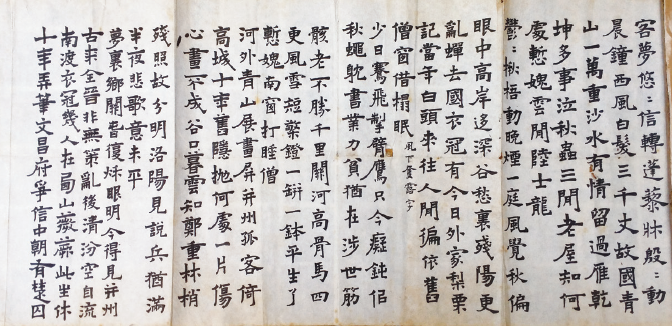 客夢悠悠信轉蓬藜牀殷殷動
晨鐘西風白髮三千丈故國青
山一萬重沙水有情留過雁乾
坤多事泣秋蟲三間老屋知何
處慙愧雲間陸士龍
鬱鬱楸梧動晚煙一庭風覺秋偏
眼中高岸迻深谷愁裏殘陽更
亂蟬去國衣冠有今日外家梨栗
記當年白頭來往人間徧依舊
僧窗借榻眠 風下露字
少日騫飛掣臂鷹只今癡鈍佀
秋蠅躭書業力貧猶在涉世筋
骸老不勝千里關河高骨馬四
更風雪短檠鐙一缾一鉢平生了
慙愧南窗打睡僧
河外青山展畫屏并州孤客倚
高城十年舊隱抛何處一片傷
心畫不成谷口暮雲知鄭重林梢
殘照故分明洛陽見說兵猶滿
半夜悲歌意未平
夢裏鄉關旾復秋眼明今得見并州
古來全晉非無策亂後清汾空自流
南渡衣冠幾人在西山薇蕨此生休
十年弄筆文昌府爭信中朝有楚囚